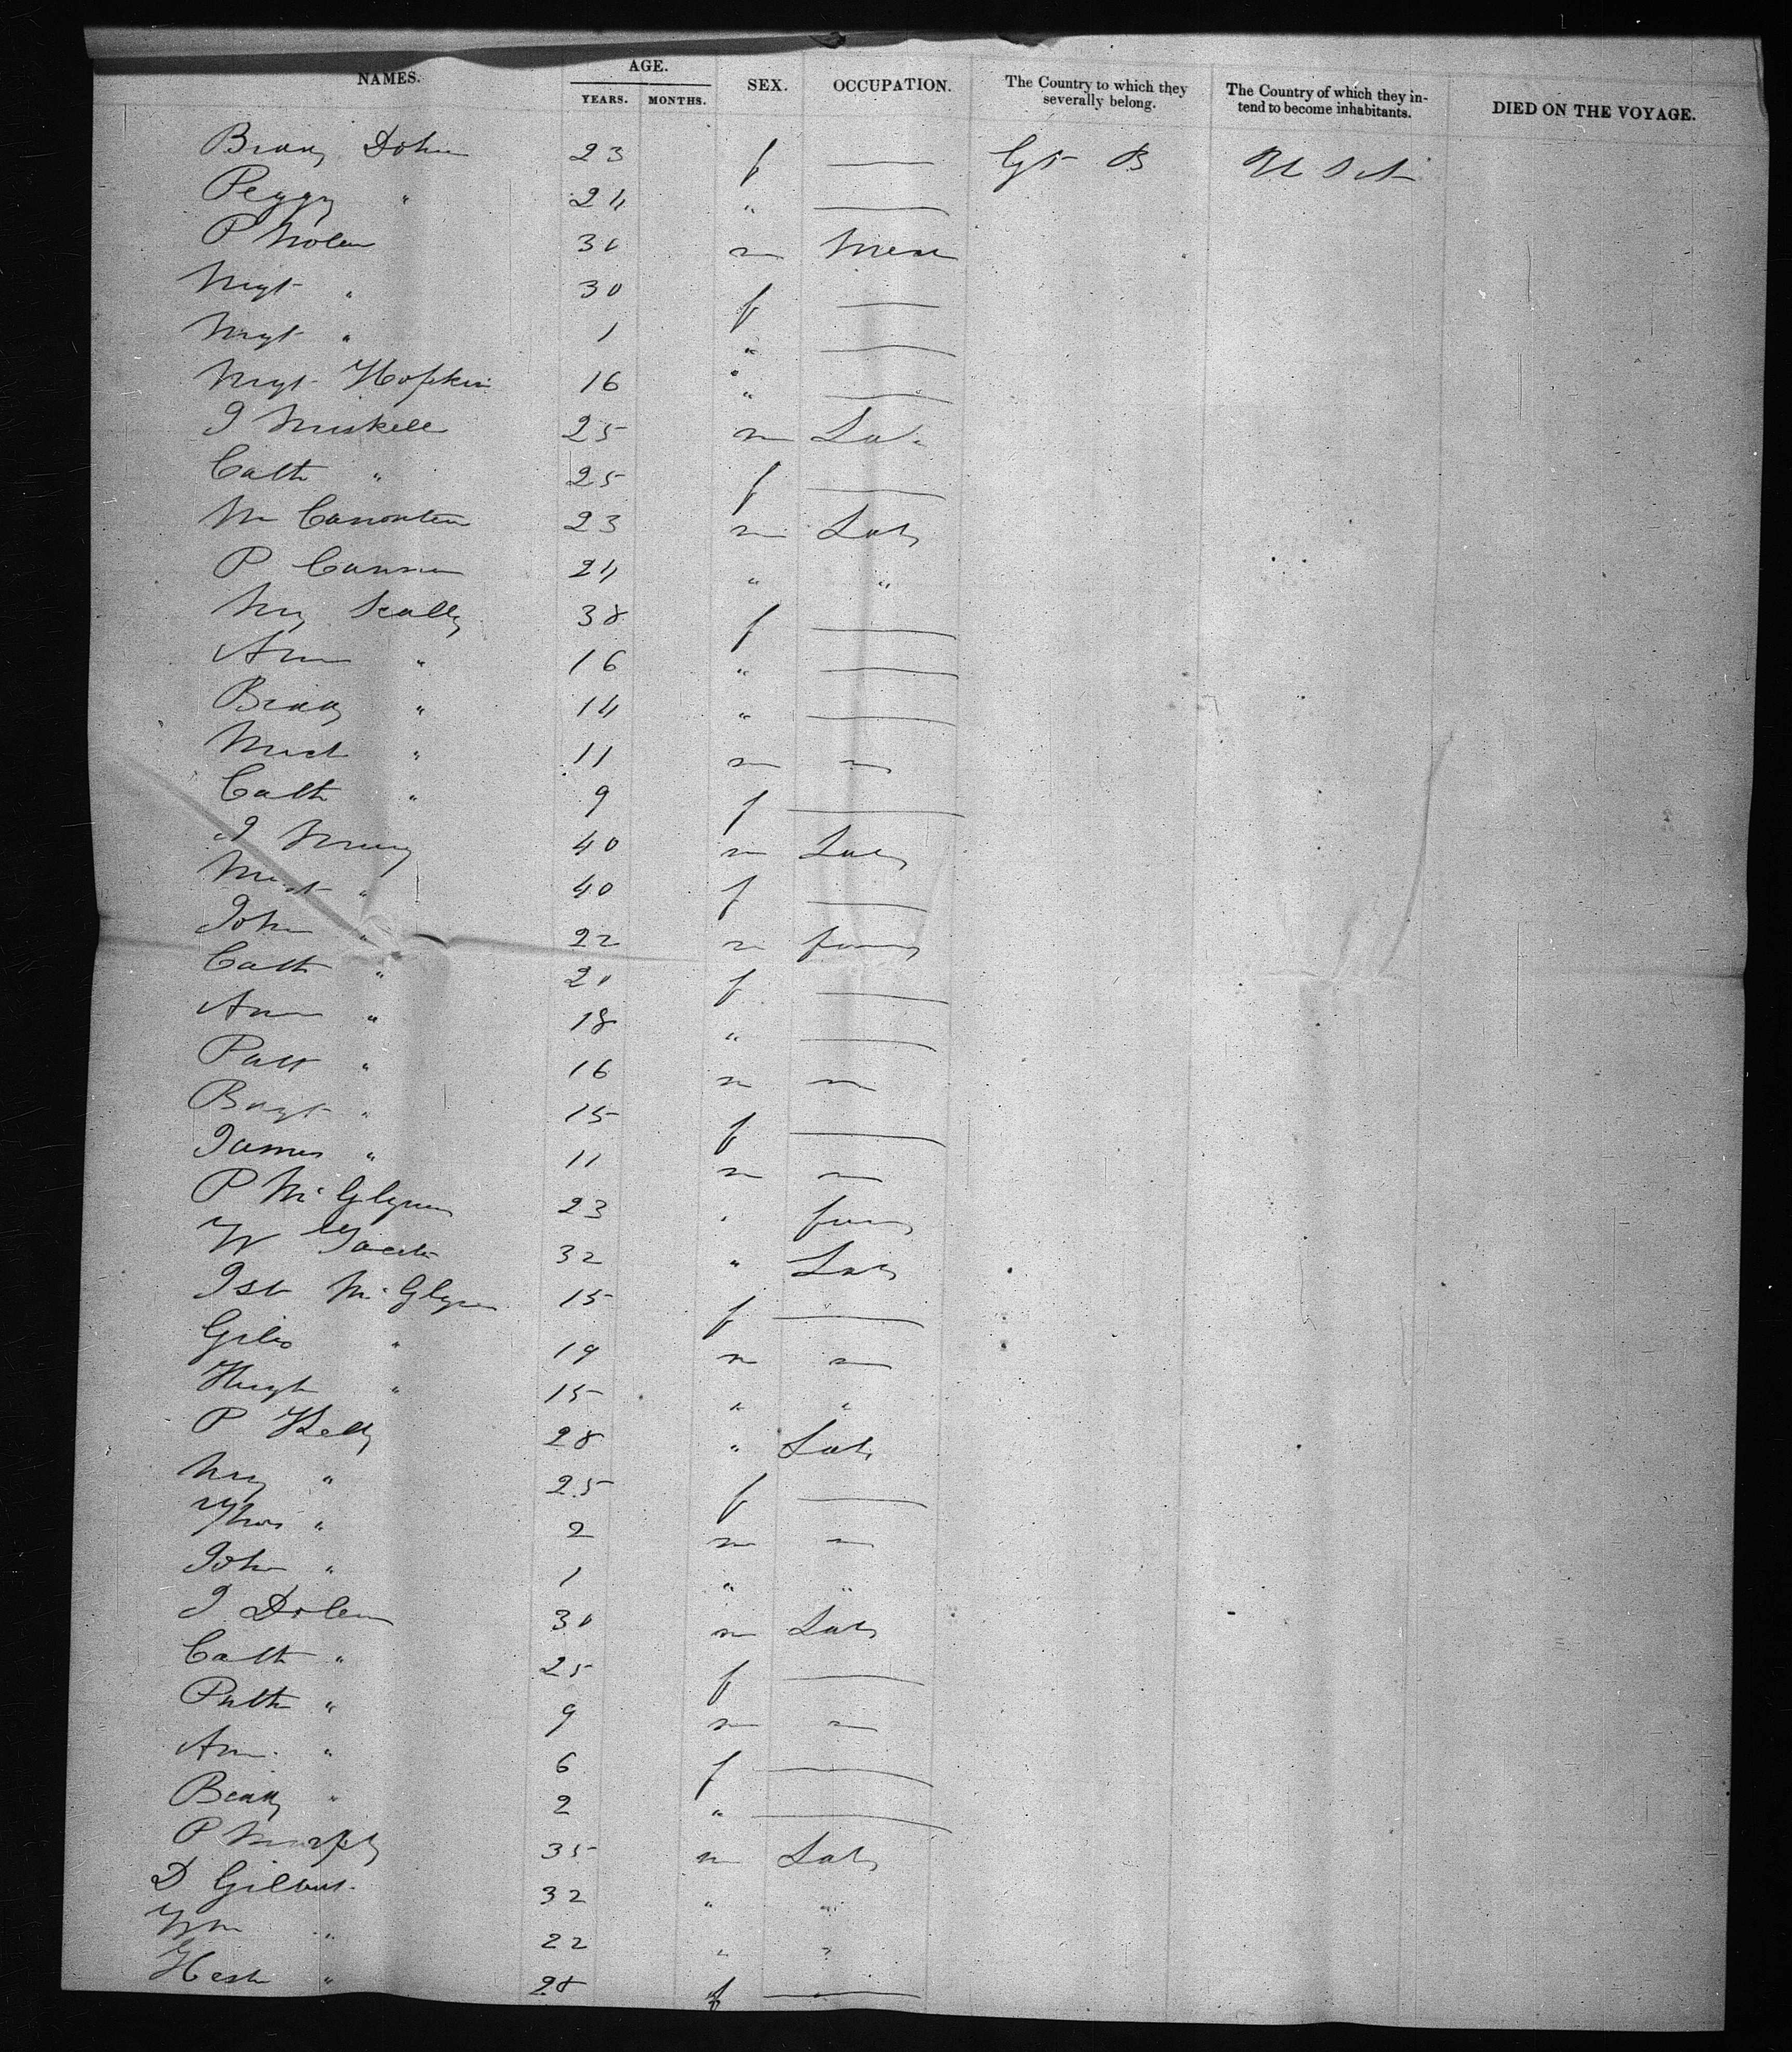 NAMES. AGE. SEX. OCCUPATION. The Country to which they severally belong. The Country of which they intend to become inhabitants. DIED ON THE VOYAGE.
YEARS. MONTHS.
Biddy 23 f — Gt B U S A
Peggy " 24 " —
P Nolan 30 m
Mgt " 30 f —
Mgt " 1 " —
Mgt Hopkin 16 " —
J Muskell 25 m Lab
Cath " 25 f —
M 23 m Lab
P Cannon 24 " "
My Scally 38 f —
Ann " 16 " —
Biddy " 14 " —
Mich " 11 m
Cath " 9 f —
J 40 m Lab
" 40 f —
John " 22 m farmer
Cath " 20 f —
Ann " 18 " —
Patt " 16 m
Bdgt " 15 f —
James " 11 m
P McGlynn 23 " farmer
W 32 " Lab
Isb McGlynn 15 f —
Giles " 19 m
Hugh " 15 " "
P Kelly 28 " Lab
My " 25 f —
Thos " 2 m
John " 1 " "
J Dolan 30 m Lab
Cath " 25 f —
Patk " 9 m
Ann " 6 f —
Biddy " 2 " —
P Murphy 35 m Lab
D Gilbert 32 " "
Wm " 22 " "
Hesh " 28 f —